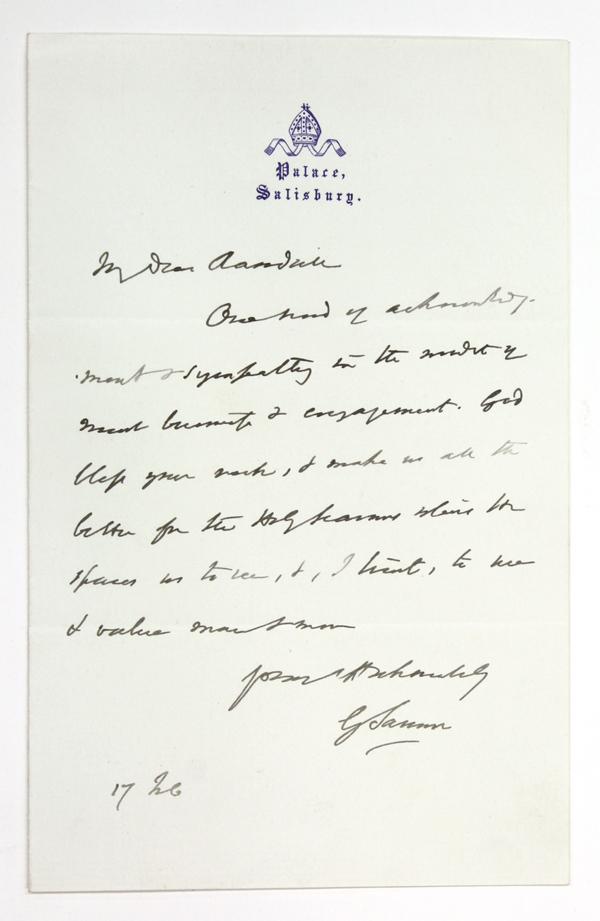 Palace,
Salisbury.
My dear Ransdale
One word of acknowledg-
-ment & sympathy in the midst of
much business & engagement. God
bless your work, & make us all the
better for the Holy Season which He
spares us to see, &, I trust, to use
& value more & more
yours affectionately
G Sarum
17 Feb